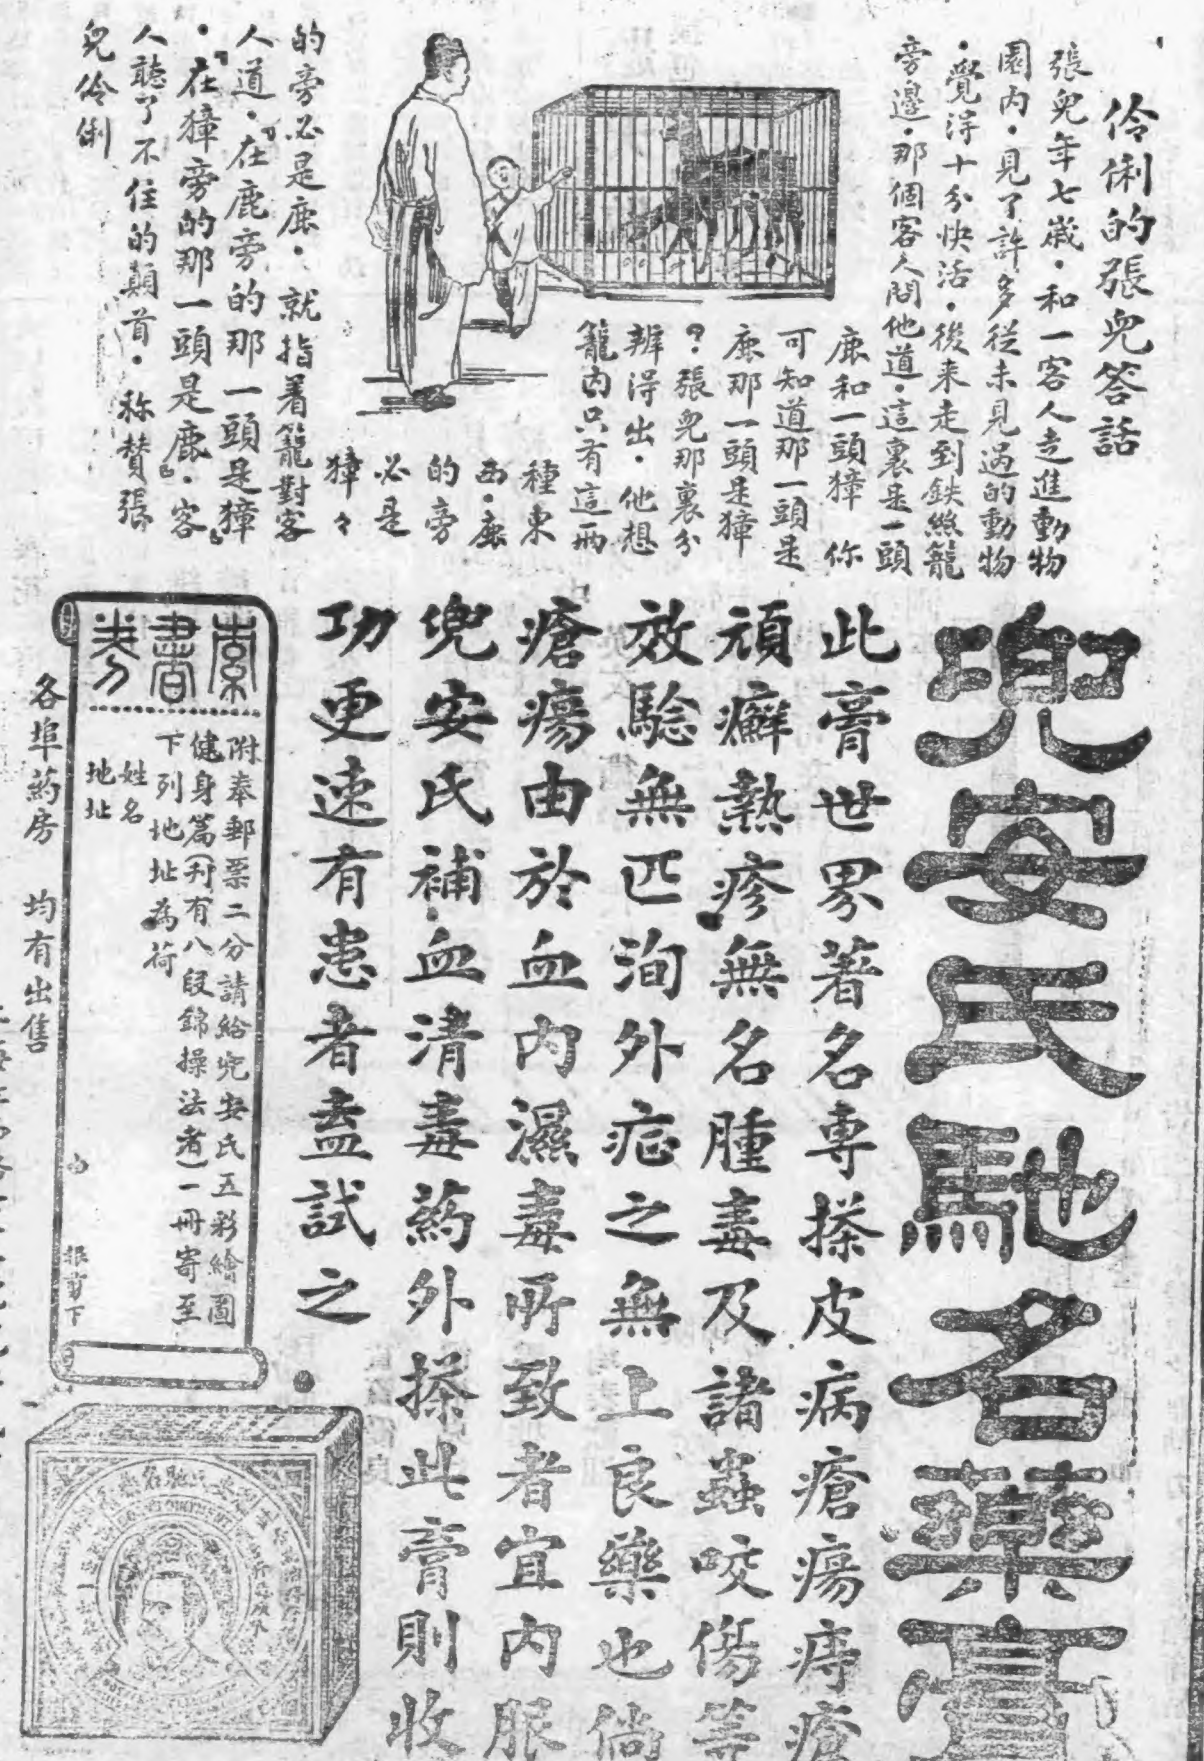 伶俐的張兒答話
張兒年七歲・和一客人走進動物
園內・見了許多從未見過的動物
・覺得十分快活・後来走到鉄絲籠
旁邊・那個客人問他道・這裏是一頭
鹿和一頭獐 你
可知道那一頭是
鹿那一頭是獐
?・張兒那裏分
辨得出・他想
籠內只有這兩
種東
西・鹿
的旁
必是
獐々
的旁必是鹿・就指着籠對客
人道・「在鹿旁的那一頭是獐
・在獐旁的那一頭是鹿」・客
人聽了不住的顛首・称贊張
兒伶俐
兜安氏馳名藥膏
此膏世界著名專搽皮病瘡瘍痔瘡
頑癬熱疹無名腫毒及諸蟲咬傷等
效驗無匹洵外症之無上良藥也倘
瘡瘍由於血內濕毒所致者宜內服
兜安氏補血清毒药外搽此膏則收
功更速有患者盍試之
索書券
附奉郵票二分請給兜安氏五彩繪圖
健身篇(刋有八段錦操法者)一冊寄至
下列地址為荷
姓名
地址
由 報剪下
各埠药房 均有出售